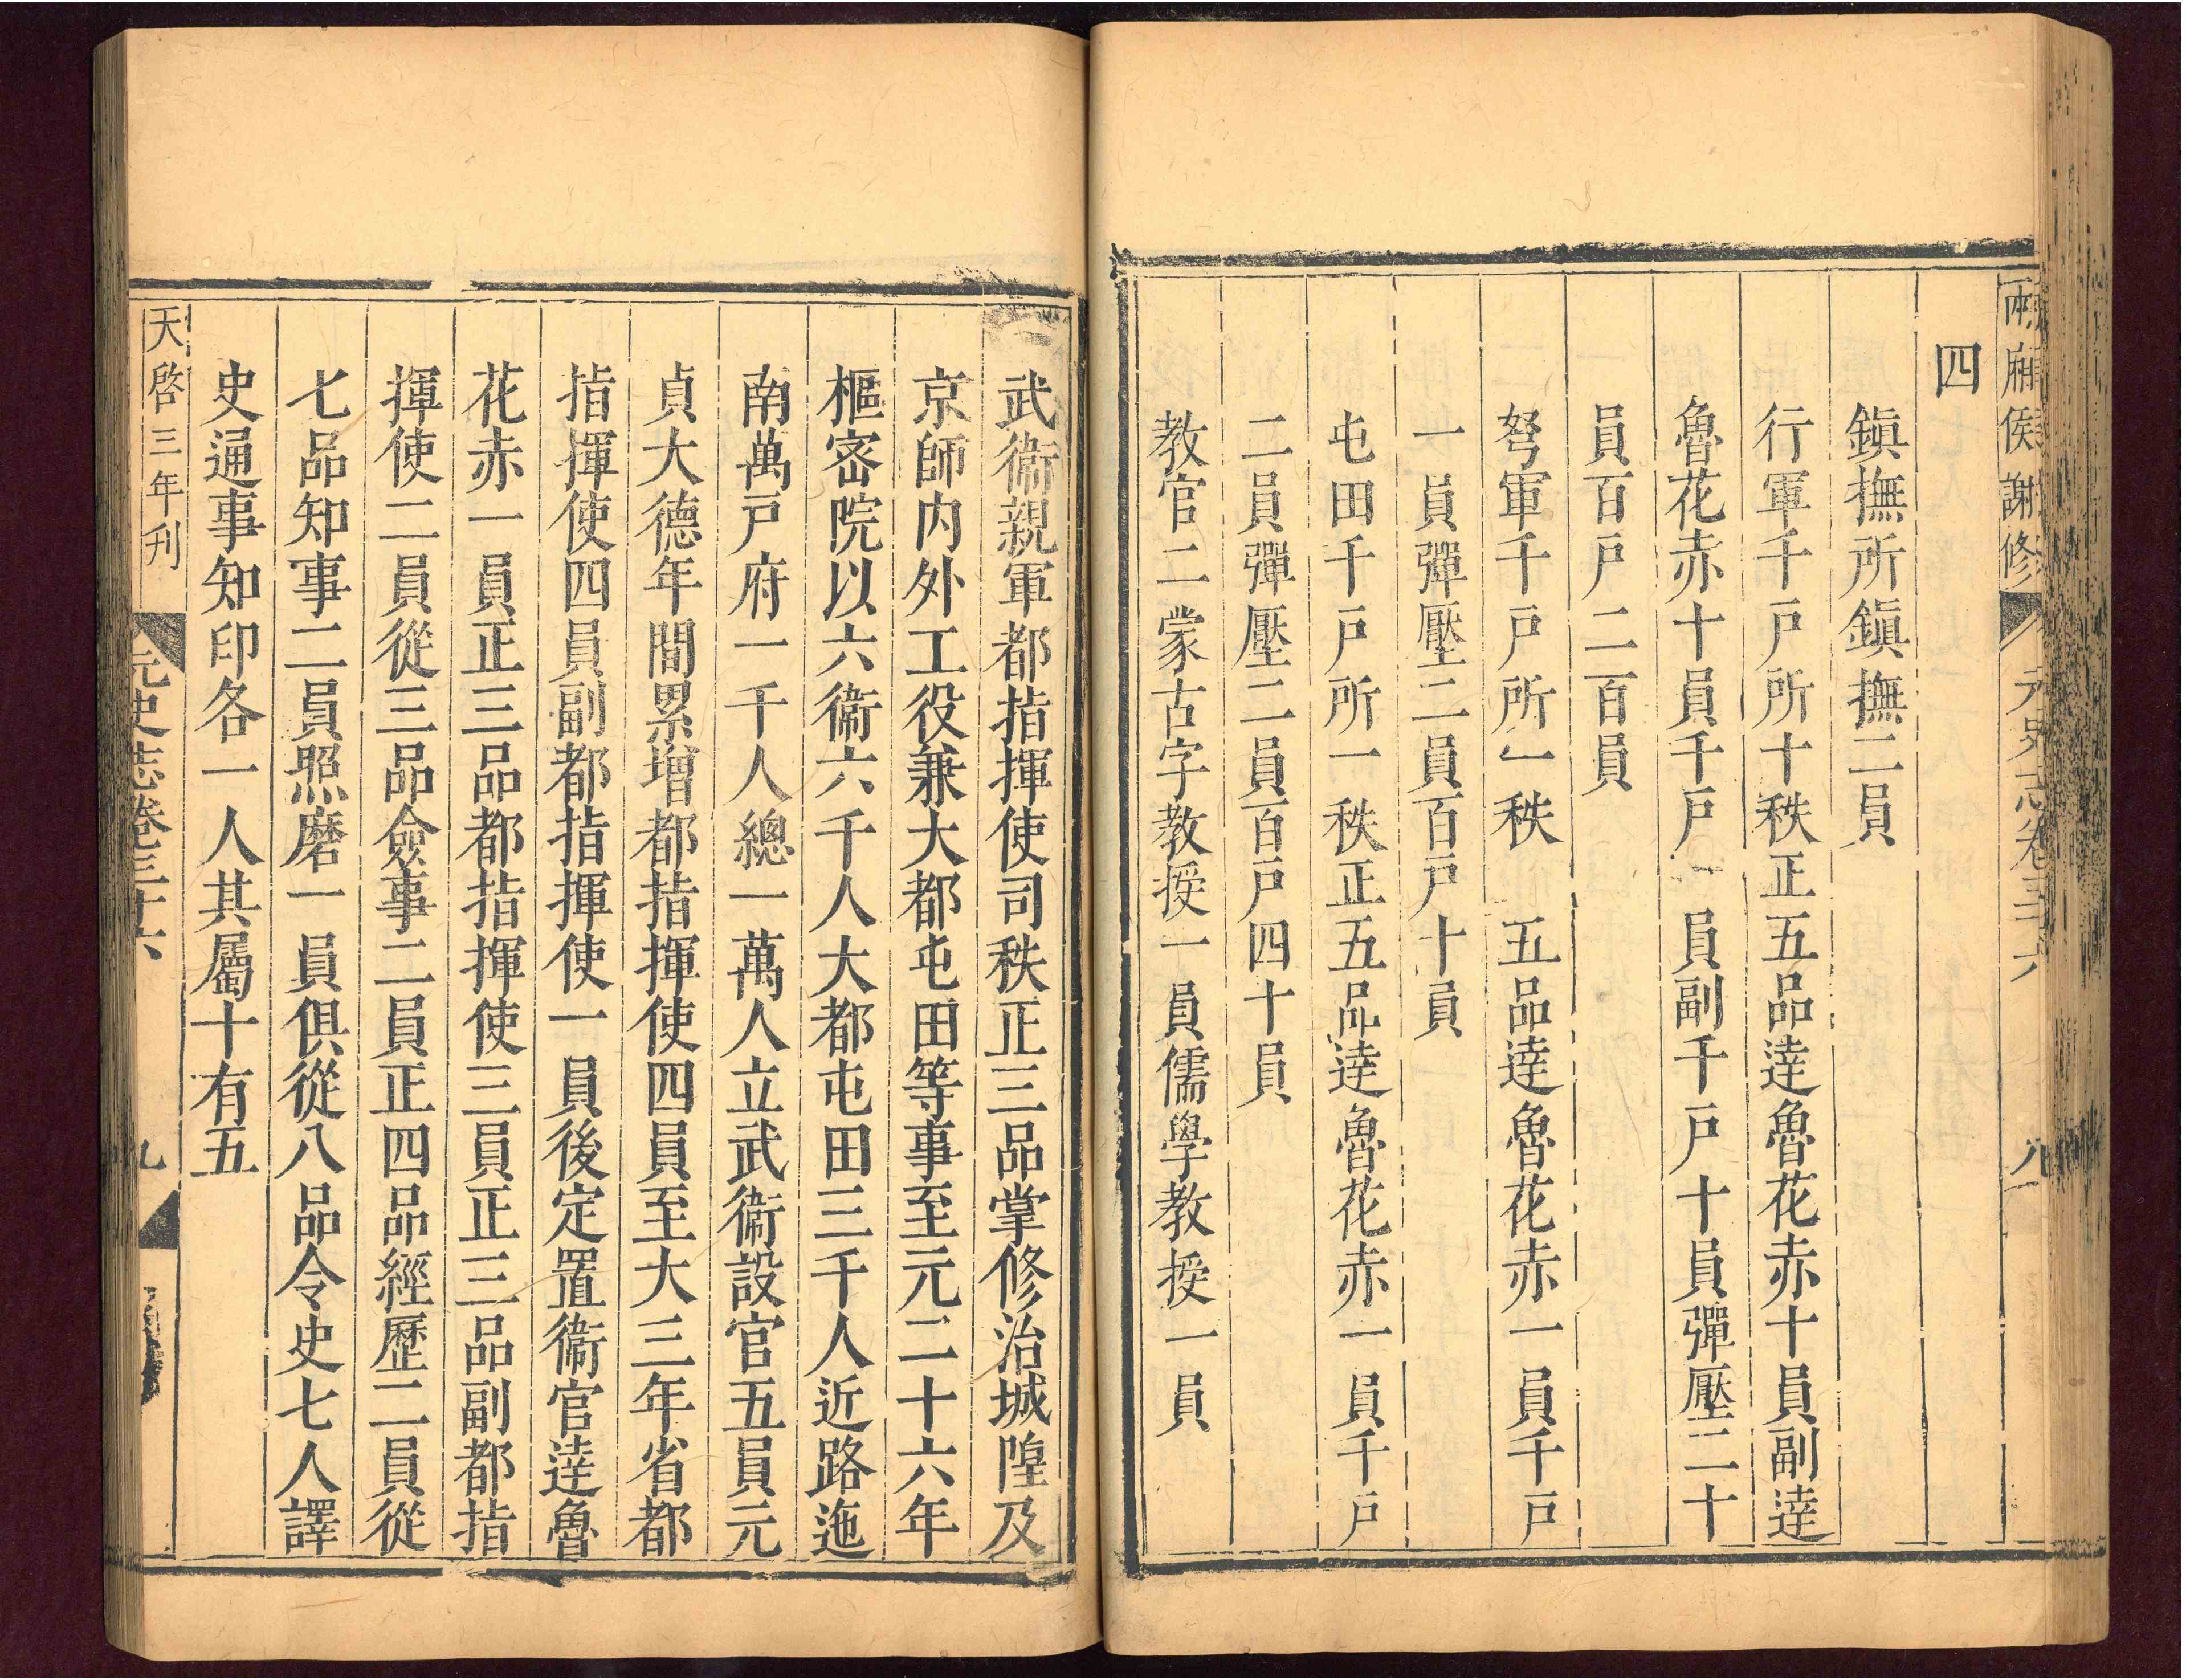 兩廂侯謝修
元史志卷三十六
八
四
鎭撫所鎭撫二員
行軍千戸所十秩正五品達魯花赤十員副達
魯花赤十員千戸一員副千戸十員彈壓二十
員百戸二百員
弩軍千戸所一秩 五品達魯花赤一員千戸
一員彈壓二員百戸十員
屯田千戸所一秩正五品達魯花赤一員千戸
二員彈壓二員百戸四十員
教官二蒙古字教授一員儒學教授一員
武衞親軍都指揮使司秩正三品掌修治城隍及
京師内外工役兼大都屯田等事至元二十六年
樞密院以六衞六千人大都屯田三千人近路迤
南萬戸府一千人總一萬人立武衞設官五員元
貞大德年間累增都指揮使四員至大三年省都
指揮使四員副都指揮使一員後定置衞官達魯
花赤一員正三品都指揮使三員正三品副都指
揮使二員從三品僉事二員正四品經歷二員從
七品知事二員照磨一員俱從八品令史七人譯
史通事知印各一人其屬十有五
天啓三年刋
元史志卷三十六
九